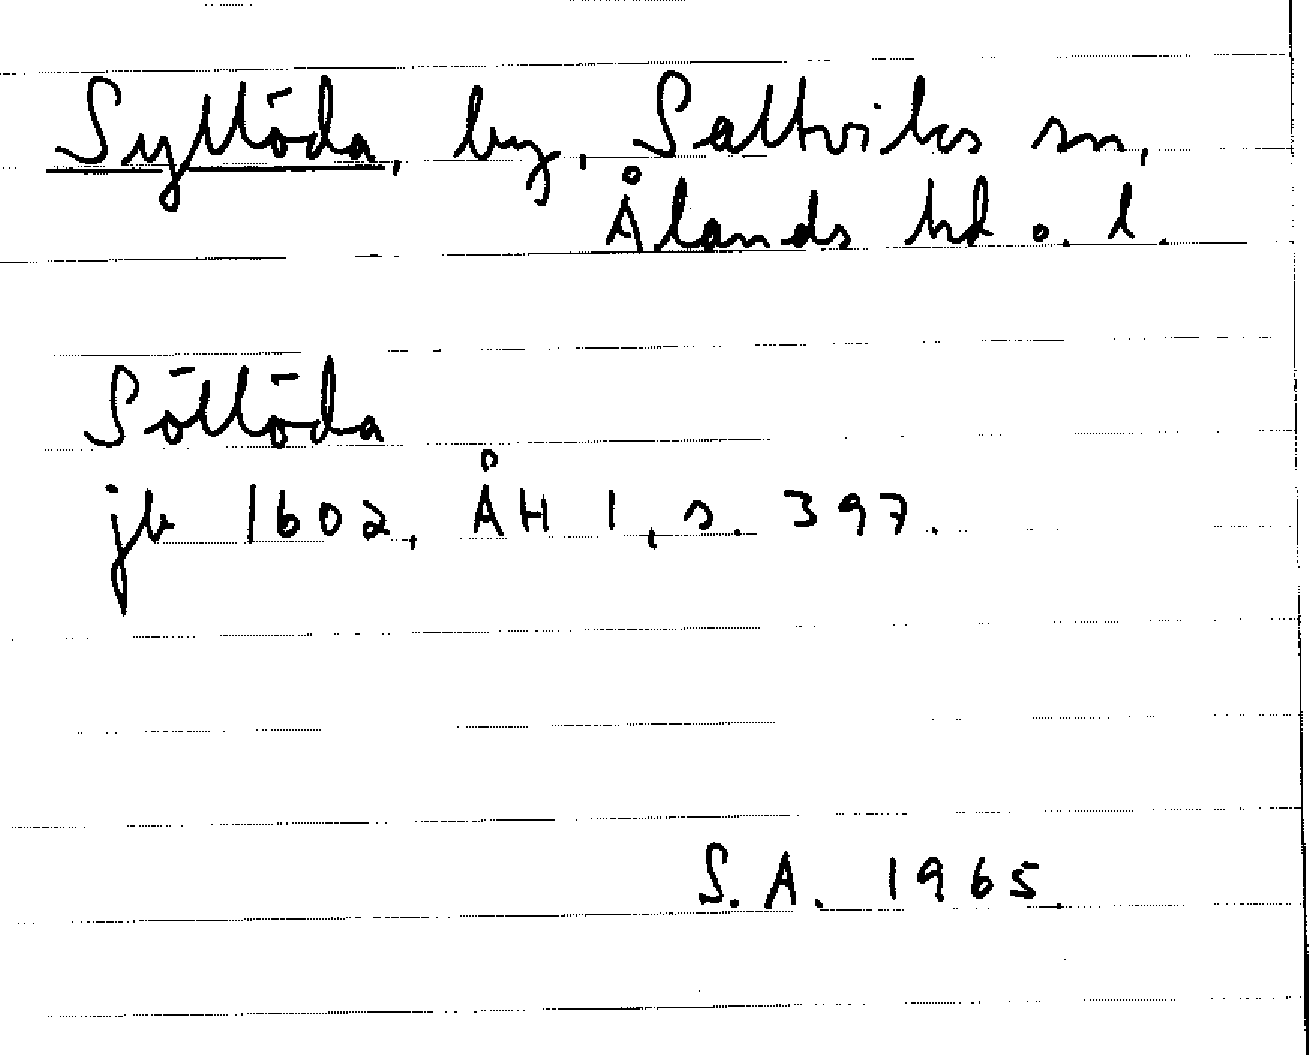 Syllöda, by, Saltviks sn,
Ålands hd o. l.
Söllöda
jb 1602, ÅH 1, s. 397.
S.A. 1965